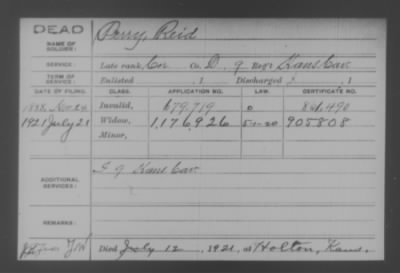 DEAD
NAME OF SOLDIER: Perry, Reid
SERVICE: Late rank, Co. D, 9 Reg't Kans Cav.
TERM OF SERVICE: Enlisted , 1 Discharged , 1
DATE OF FILING. CLASS. APPLICATION NO. LAW. CERTIFICATE NO.
1888, Nov 24 Invalid, 679,719 841,490
1921 July 21 Widow, 1,176,926 5-1-20 905808
Minor,
ADDITIONAL SERVICES: 9 Kans Cav.
REMARKS:
Died July 12, 1921, at Holton, Kans.